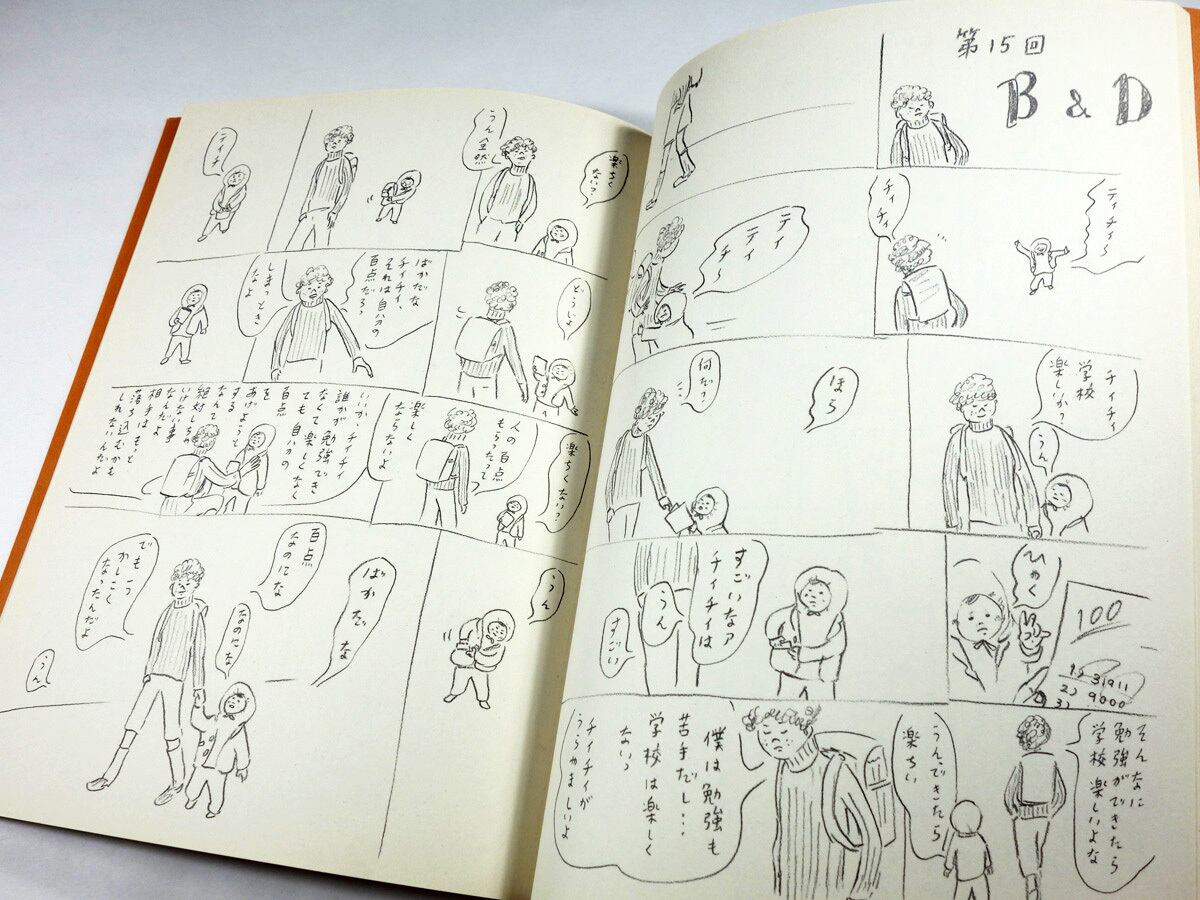 第15回
B & D
ティチィ〜
チィチィ
ティティチ〜
チィチィ
学校
楽しか?
うん
ほら
何だ?
ひゃく
100
1) 31911
2) 9000
3)
すごいなァ
チィチィは
うん
すごい
そんなに
勉強ができたら
学校楽しいよな
うんできたら
楽ちい
僕は勉強も
苦手だし…
学校は楽しく
ないっ
チィチィが
うらやましいよ
楽ちく
ない?
うん全然
ティチ
どうじょ
ばかだな
チィチィ、
それは自分の
百点だろ?
しまっとき
なよ
楽ちくない?
人の百点
もらったって
楽しく
ならないよ
いいか、チィチィ
誰かが勉強でき
なくて楽しくなく
ても自分の
百点
を
あげようと
する
なんて
絶対しちゃ
いけない事
なんだよ
相手はもっと
落ち込むかも
しれないんだよ
うん
ばかだな
百点
なのにな
なのにな
でも一つ
かしこく
なったんだよ
うん